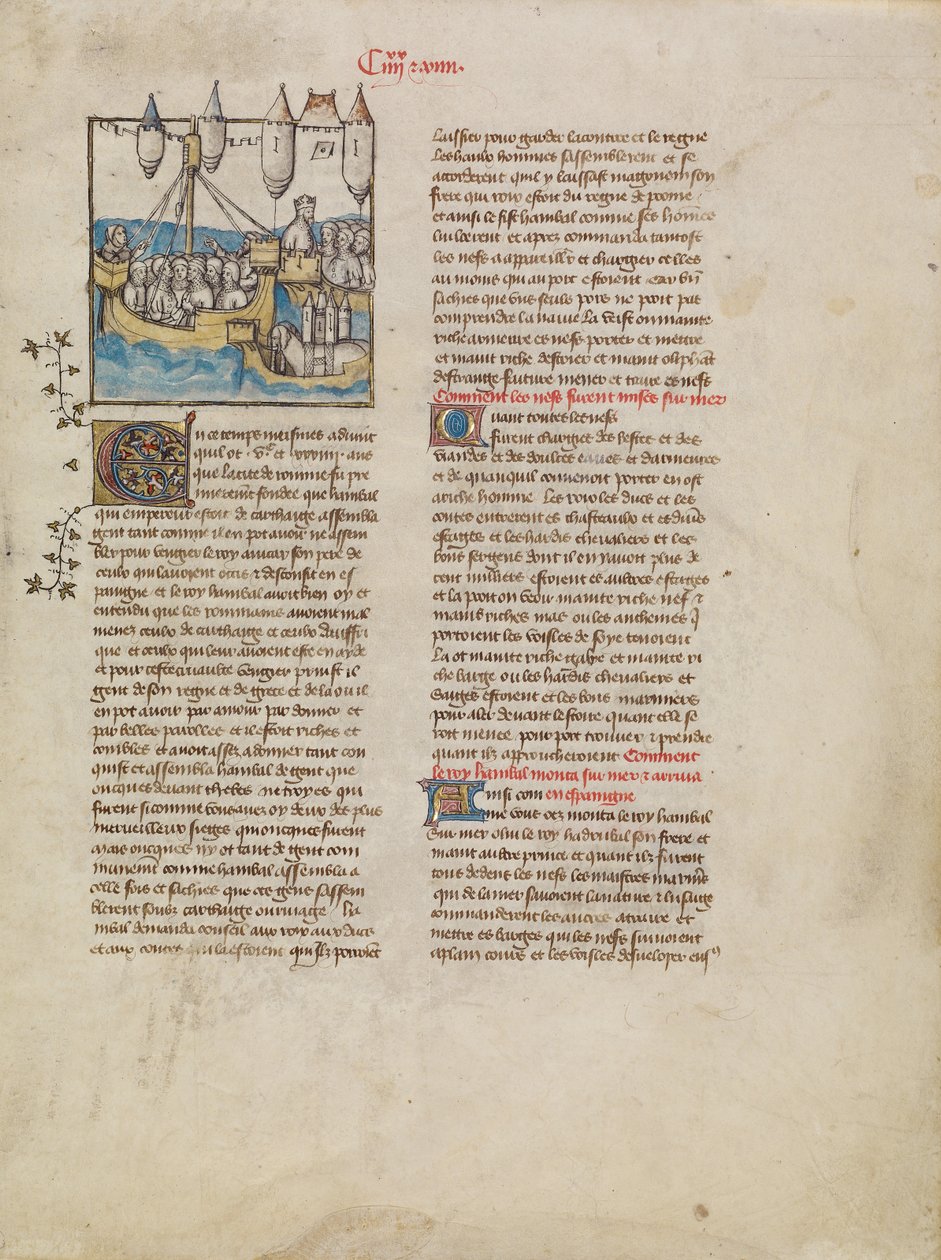 C iiii xx et xviii.
En ce temps meismes aduint
quil ot .v.c et xxxiiii. ans
que la cite de romme fu pre
mierement fondee que hanibal
qui empereur estoit de carthaige assembla
gent tant comme il en pot auoir ne assem
bler pour vengier le roy amicar son pere de
ceulx qui lauoient occis et desconfit en es
paingne et le roy hanibal auoit bien oy et
entendu que les rommains auoient mal
menez ceulx de carthaige et ceulx dauffri
que et ceulx qui leur auoient este en ayde
et pour ceste cruaulte vengier prinst il
gent de son regne et de grece et de la ou il
en pot auoir par amour par donner et
par belles parolles et il estoit riches et
combles et auoit assez a donner tant con
quist et assembla hanibal de gent que
oncques deuant thebes ne troyes qui
furent si comme vous auez oy deux des plus
merueilleux sieges qui oncques furent
Mais oncques ny ot tant de gent com
munement comme hanibal assembla a
celle fois et sachies que ces gens sassem
blerent soubz carthaige ou riuage Ha
nibal demanda conseil aux roys aux ducs
et aux contes qui la estoient qui Ilz porroient
laissier pour garder la contree et le regne
Les haulx hommes sassemblerent et se
accorderent quil y laissast magonem son
frere qui roy estoit du regne de
et ainsi le fist hanibal comme ses hommes
lui loerent et apres commanda tantost
les nefs a appareillier et chargier celles
au moins qui au port estoient Car bien
sachies que vns seulz pors ne pooit pas
comprendre la nauie La veist on mainte
riche armeure es nefs porter et mettre
et maint riche destrier et maint oliphant
destrange faiture mener et traire es nefs
Comment les nefs furent mises sur mer
Quant toutes les nefs
furent chargies des bestes et des
viandes et des doulces eaues et darmeures
et de quanquil conuenoit porter en ost
a riche homme Les roys les ducs et les
contes entrerent es chasteaulx et es diuers
estages et les hardis cheualiers et les
bons sergens dont il en y auoit plus de
cent milliers estoient es aultres estages
et la pooit on veoir mainte riche nef et
mains riches mas ou les anthennes qui
portoient les voilles de soye tenoient
La ot mainte riche et mainte ri
che barge ou les hardis cheualiers et
saiges estoient et les bons mariniers
pour aler deuant lestoire quant elle se
roit menee pour port trouuer et prendre
quant ilz approucheroient Comment
le roy hanibal monta sur mer et arriua
Ainsi com en espaingne
me vous oez monta le roy hanibal
Sur mer o lui le roy hadrubal son frere et
maint aultre prince et quant ilz furent
tous dedens les nefs les maistres mariniers
qui de la mer sauoient la nature et lusaige
commanderent les ancres a traire et
mettre es barges qui les nefs suiuoient
a plain cours et les voilles desueloper